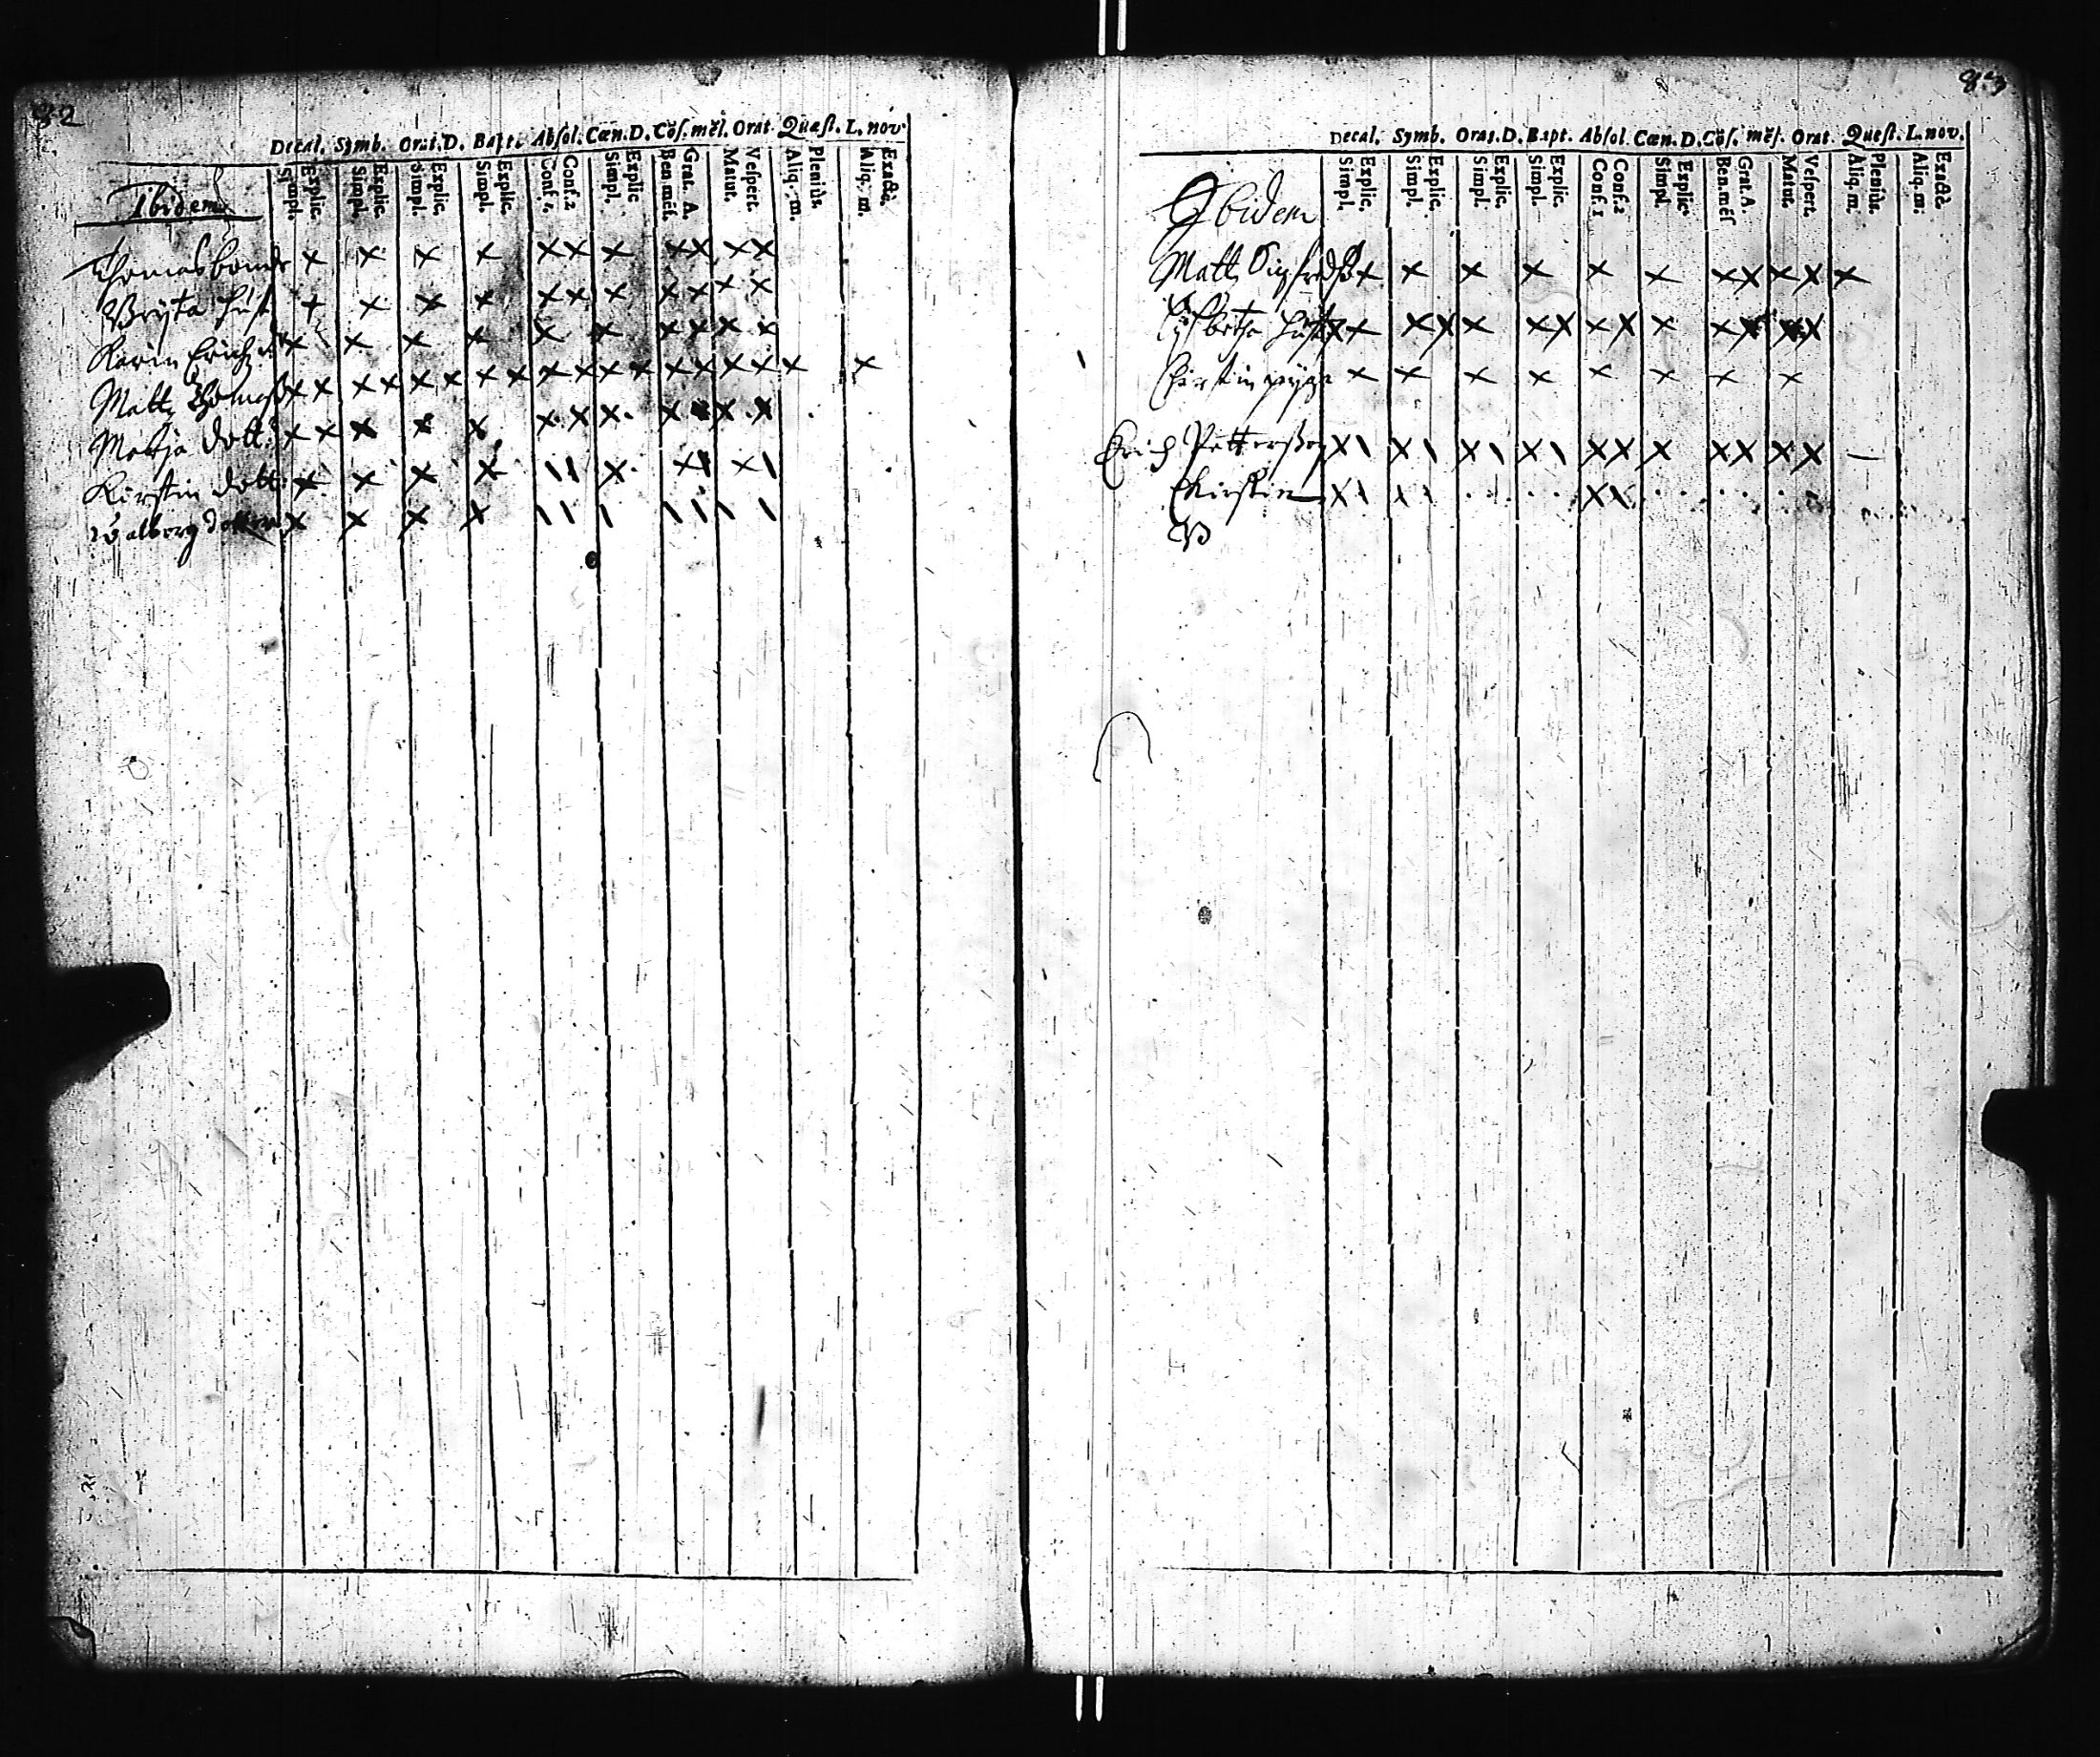 82
Decal. Symb. Orat. D. Bapt. Abſol. Cœn. D. Cōſ. mēſ. Orat. Quæſt. L. nov.
Simpl. Explic. Simpl. Explic. Simpl. Explic. Simpl. Explic. Conf. 1. Conf. 2 Simpl. Explic Ben. mēſ. Grat. A. Matut. Veſpert. Aliq. m. Pleniùs. Aliq. m. Exactè.
Ibidem
Thomas bonde x x x x x x x x x x x
Bryta hust x x x x x x x x x x x
Karin Erichz x x x x x x x x x x
Matz Thomass x x x x x x x x x x x x x x x x x x
Marja dott: x x x x x x x x x x x x
Kirstin dott: x x x x \ \ x x \ x \
Walborg dotter x x x x \ \ \ \ \ \ \
83
Decal. Symb. Orat. D. Bapt. Abſol. Cœn. D. Cōſ. mēſ. Orat. Quæſt. L. nov.
Simpl. Explic. Simpl. Explic. Simpl. Explic. Simpl. Explic. Conf. 1 Conf. 2 Simpl. Explic Ben. mēſ Grat. A. Matut. Veſpert. Aliq. m. Pleniùs. Aliq. m: Exactè.
Ibidem
Matz Sigfredß x x x x x x x x x x x
Lisbetha hust x x x x x x x x x x x x x x
Chirstin pyga x x x x x x x x
Erich Pettersson x \ x \ x \ x \ x x x x x x x —
Chirstin x \ \ \ x x
B